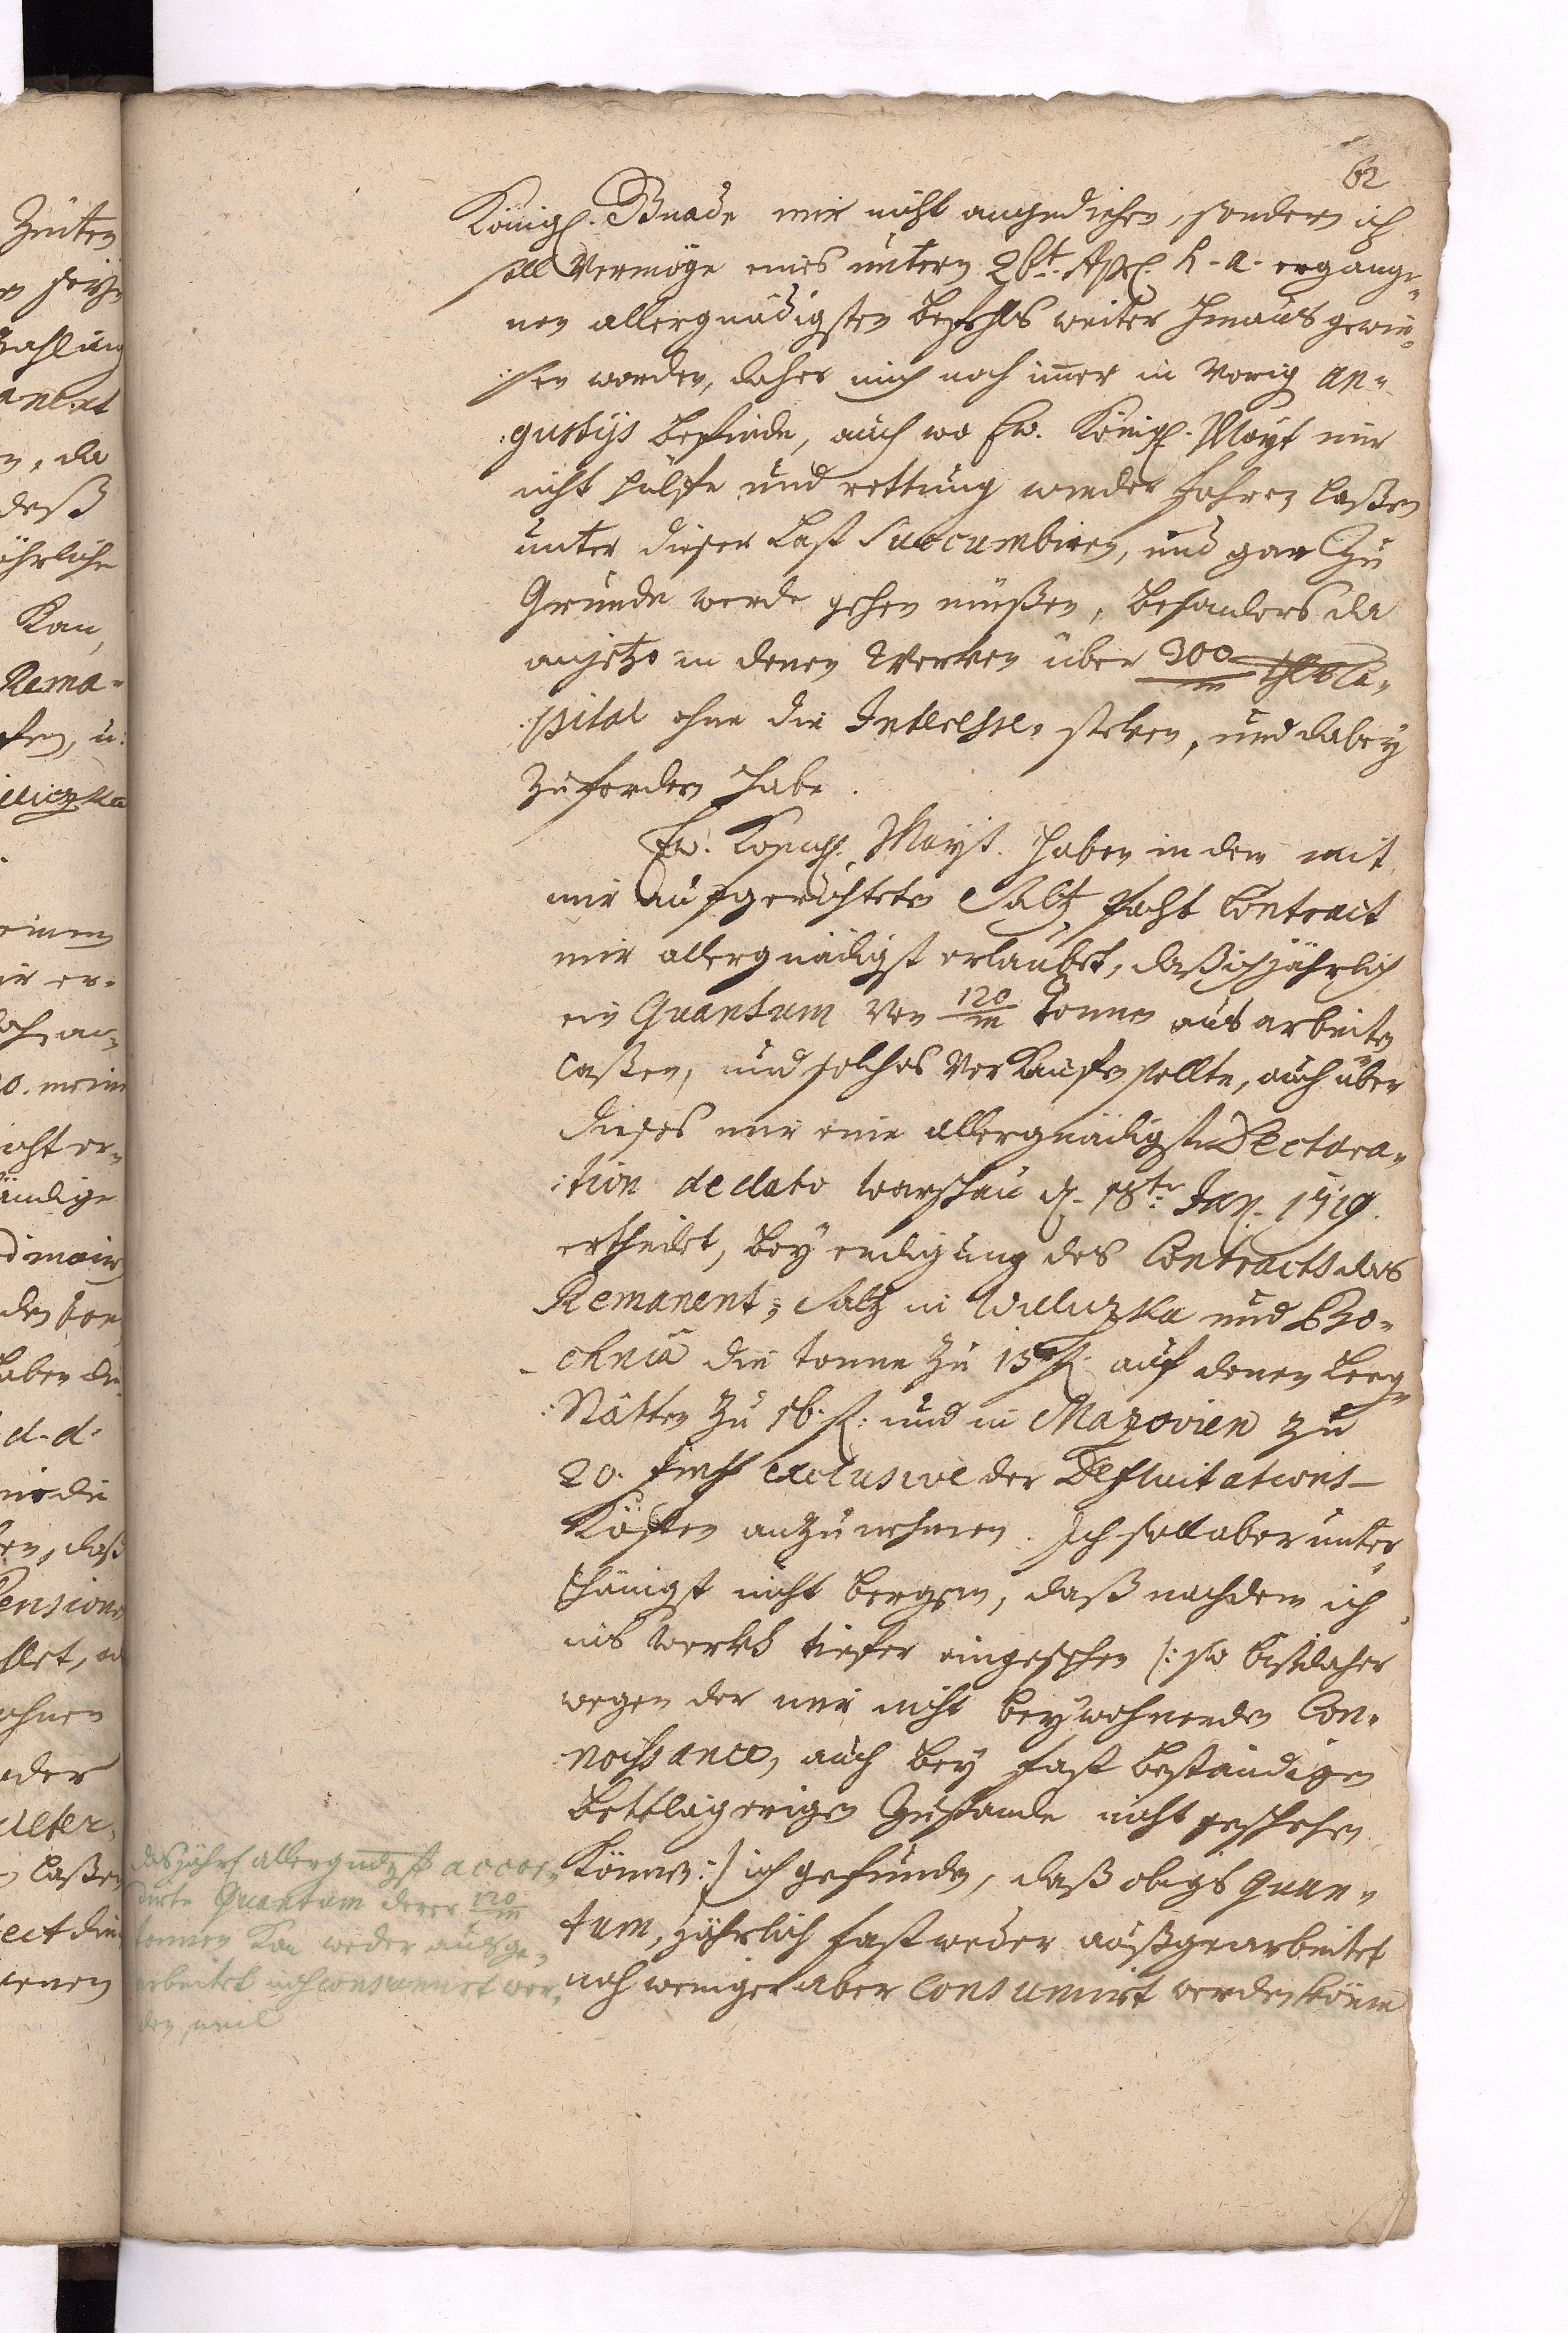 62
Königl. Gnade mir nicht angediehen, sondern ich
soll Vermöge eines untern 26t. Apl. h. a. ergange„
nen allergnädigsten Befehls weiter hinaus gewie„
:sen worden, daher mich noch im̅er in Vorig an„
:gustijs befinde, auch wo Ew. Königl. Mayt mir
nicht hülffe und rettung wieder fahren laßen
unter dieser Last Succumbiren, und gar Zu
Grunde werde gehen müßen, besonders da
anjetzo in denen Werken über 300/m thlr Ca„
:pital ohne die Interesse. steken, und dabey
Zufordern habe.
Ew. Königl. Mayt. haben in dem mit
mir aufgerichteten Saltz Pacht Contract
mir allergnädigst erlaubet, daß ich jährlich
ein Quantum Von 120/m Tonnen ausarbeiten
laßen, und solches Verkauffen sollte, auch über
dieses mir eine allergnädigste Declara„
:tion de dato Warschau d. 18te Jan. 1719.
ertheilet, bey endigung des Contracts das
Remanent„ Saltz in Wieliczka und Bo„
chnia die tonne Zu 15 fl. auf denen Berg„
:Stätten Zu 16. fl: und in Mazovien zu
20. Timpf exclusive der Defluitations
Kosten anzunehmen. Ich soll aber unter„
thänigst nicht bergen, daß nachdem ich
ins Werck tiefer eingesehen /: so bißdaher
wegen der mir nicht beywohnenden Con„
noissance, auch bey fast beständigen
bettlägerigen Zustande nicht geschehen
können :/ ich gefunden, daß obiges Quan„
tum, jährlich fast weder außgearbeitet
noch weniger aber Consumirt werden könne
das jährl allergndgst accor„
dirte Quantum derer 120/m
tonnen Kan weder ausge„
arbeitet noch consumirt wer„
den weil